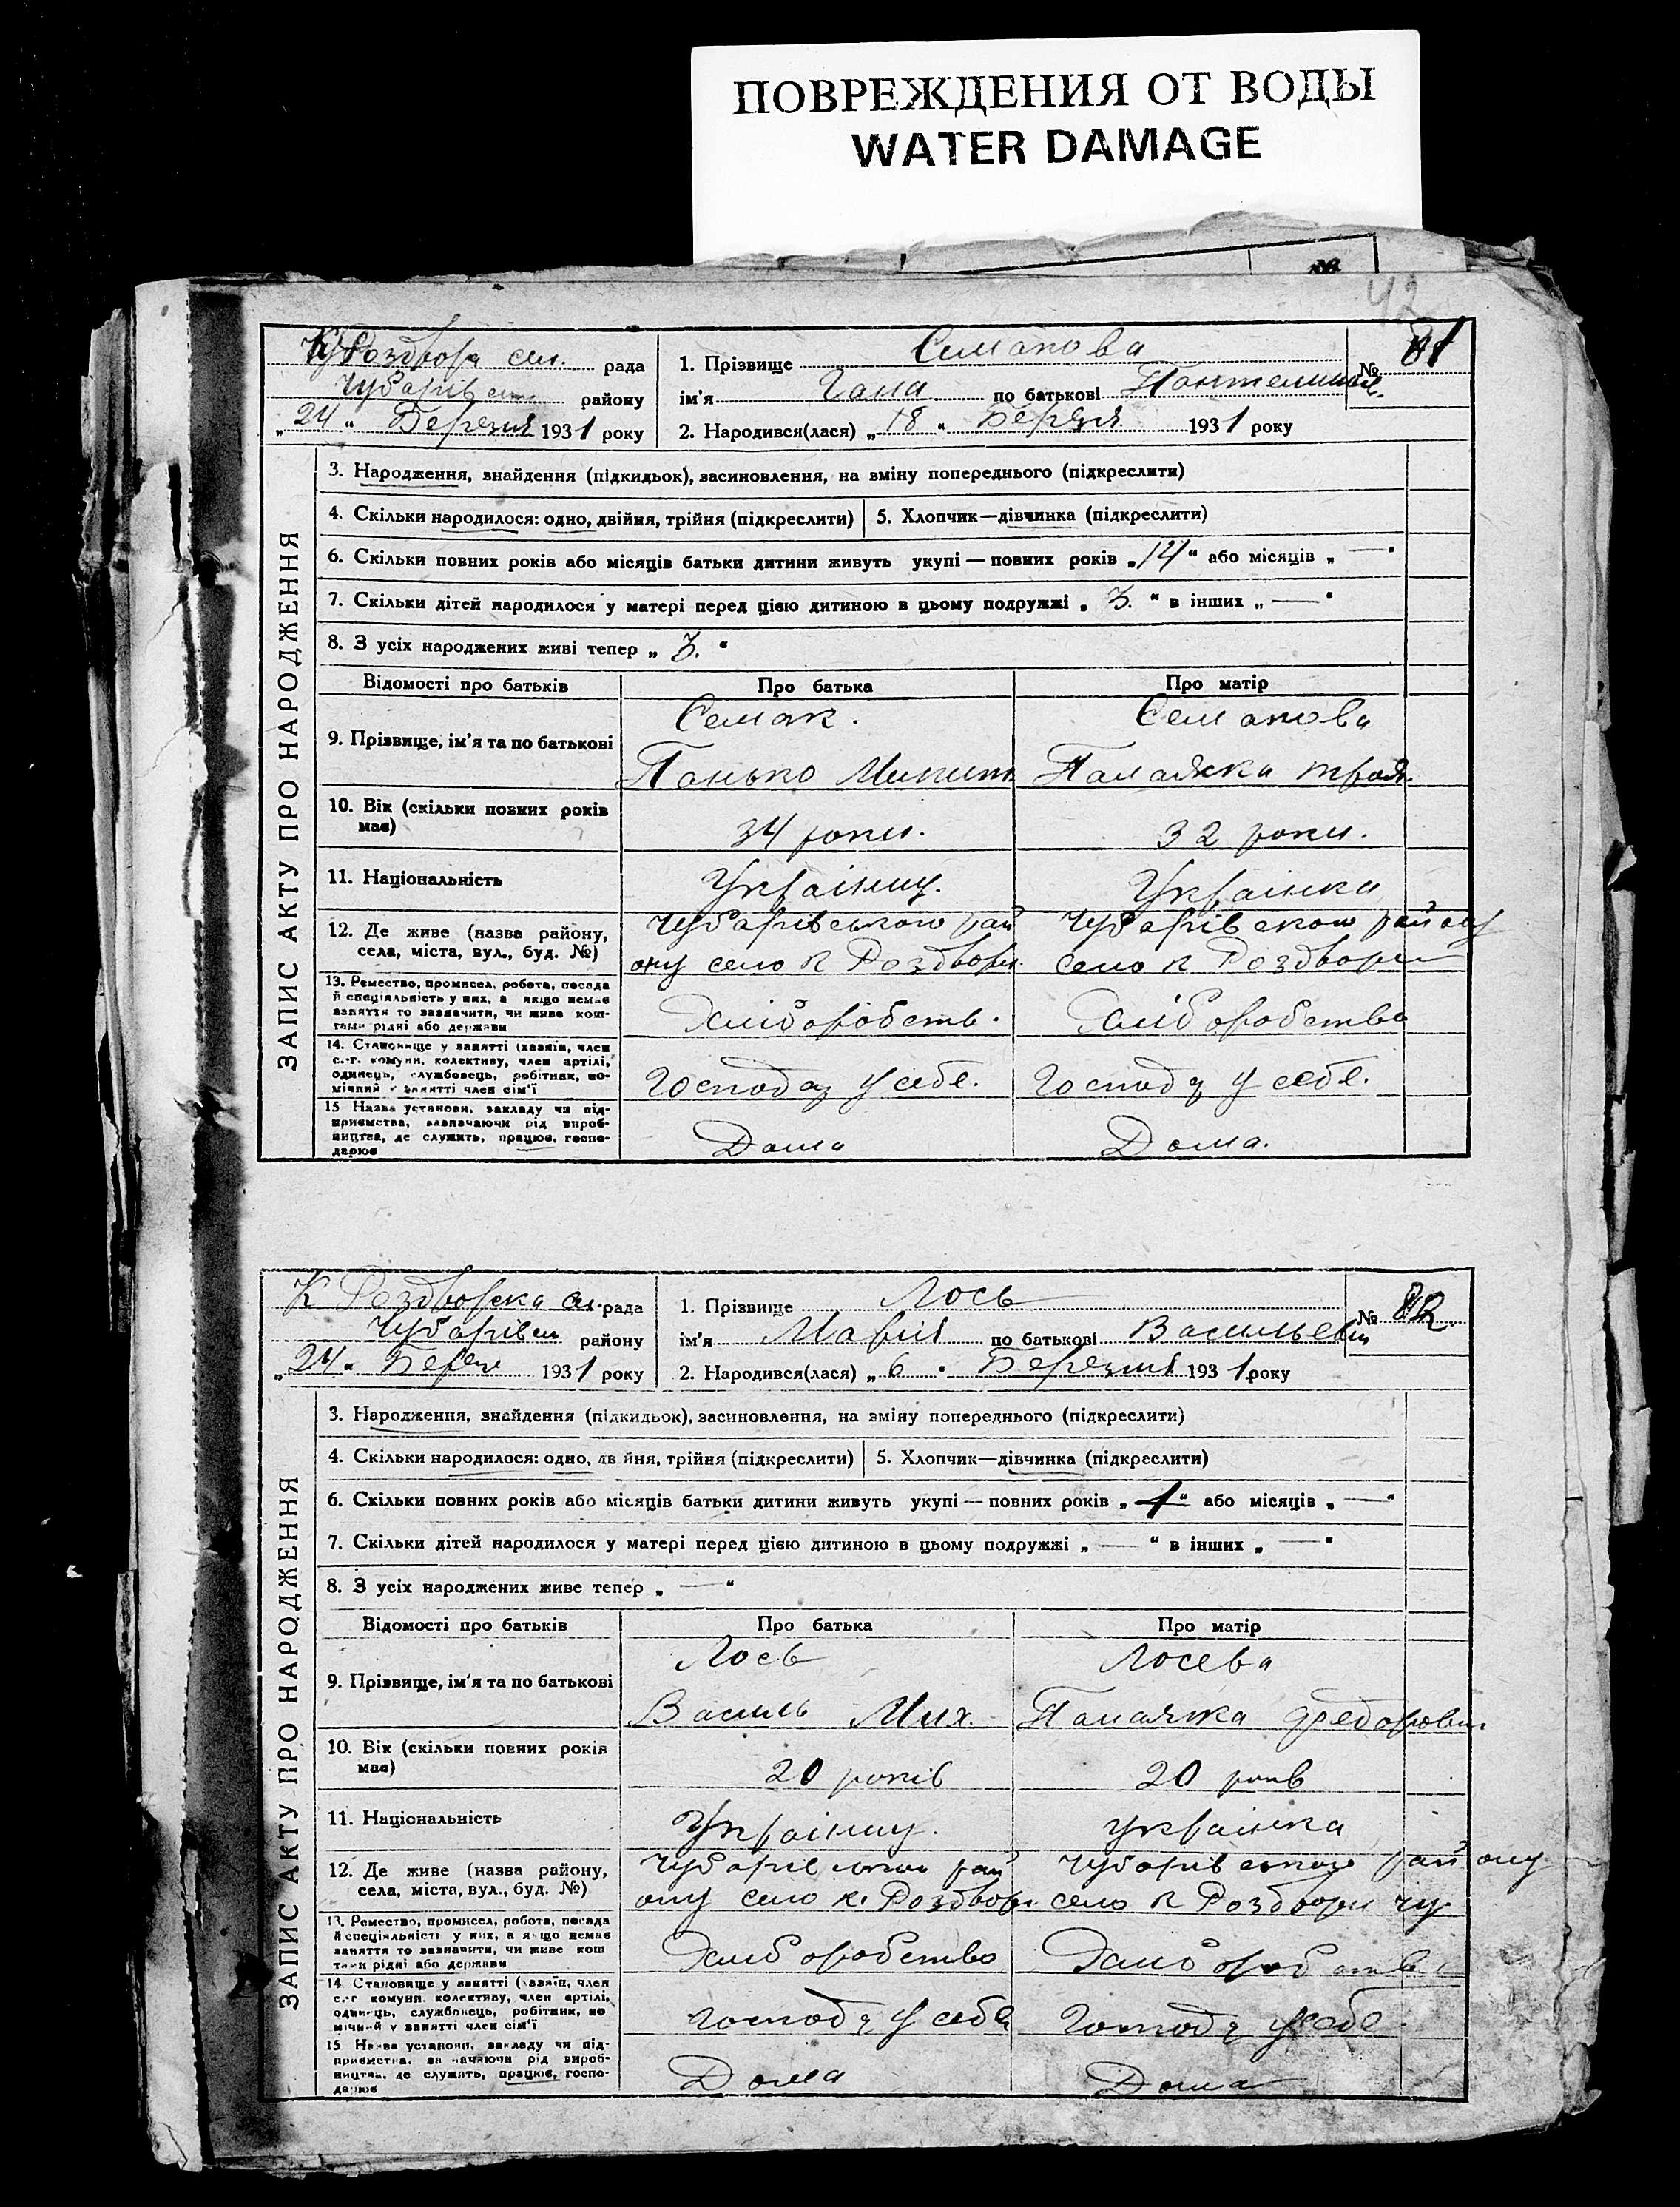 ПОВРЕЖДЕНИЯ ОТ ВОДЫ
WATER DAMAGE
№
42
К Роздвора сіл. рада
Чубарівськ. району
„24“ Березня 1931 року
1. Прізвище Семакова
ім'я Гана по батькові
2. Народився(лася) „18“ Березня 1931 року
№ 81
ЗАПИС АКТУ ПРО НАРОДЖЕННЯ
3. Народження, знайдення (підкидьок), засиновлення, на зміну попереднього (підкреслити)
4. Скільки народилося: одно, двійня, трійня (підкреслити)
5. Хлопчик—дівчинка (підкреслити)
6. Скільки повних років або місяців батьки дитини живуть укупі — повних років „14“ або місяців „—“
7. Скільки дітей народилося у матері перед цією дитиною в цьому подружжі „3.“ в інших „—“
8. З усіх народжених живі тепер „3.“
Відомості про батьків
Про батька
Про матір
9. Прізвище, ім'я та по батькові
Семак.
Панько Микит
Семакова
Палажка
10. Вік (скільки повних років має)
34 роки.
32 роки.
11. Національність
Українец.
Українка
12. Де живе (назва району, села, міста, вул., буд. №)
Чубарівського рай
ону село К Роздори
Чубарівского району
село К Роздори
13. Ремество, промисел, робота, посада й спеціяльність у них, а якщо немає заняття то зазначити, чи живе коштами рідні або держави
Хліборобств.
Хліборобства
14. Становище у занятті (хазяїн, член с.-г. комуни, колективу, член артілі, одинець, службовець, робітник, помічний у занятті член сім'ї
Господ у себе.
Господ у себе.
15 Назва установи, закладу чи підприємства, зазначаючи рід виробництва, де служить, працює, господарює
Дома
Дома.
К Роздворска сіл. рада
Чубарівськ району
„24“ Берез 1931 року
1. Прізвище Лось
ім'я Марія по батькові Васильевн
2. Народився(лася) „6“ Березня 1931 року
№ 82
ЗАПИС АКТУ ПРО НАРОДЖЕННЯ
3. Народження, знайдення (підкидьок), засиновлення, на зміну попереднього (підкреслити)
4. Скільки народилося: одно, двійня, трійня (підкреслити)
5. Хлопчик—дівчинка (підкреслити)
6. Скільки повних років або місяців батьки дитини живуть укупі — повних років „1“ або місяців „—“
7. Скільки дітей народилося у матері перед цією дитиною в цьому подружжі „—“ в інших „—“
8. З усіх народжених живе тепер „—“
Відомості про батьків
Про батька
Про матір
9. Прізвище, ім'я та по батькові
Лось
Василь Мих.
Лосева
Палажка Федоровн.
10. Вік (скільки повних років має)
20 років
20 років
11. Національність
Українец.
Українка
12. Де живе (назва району, села, міста, вул., буд. №)
Чубарівського рай
ону село К. Роздвори
Чубарівського району
село К Роздвори
13. Ремество, промисел, робота, посада й спеціяльність у них, а якщо немає заняття то зазначити, чи живе коштами рідні або держави
Хліборобство
Хліборобств
14. Становище у занятті (хазяїн, член с.-г. комуни, колективу, член артілі, одинець, службовець, робітник, помічний у занятті член сім'ї
Господ у себе
Господ у себе
15 Назва установи, закладу чи підприємства, зазначаючи рід виробництва, де служить, працює, господарює
Дома
Дома